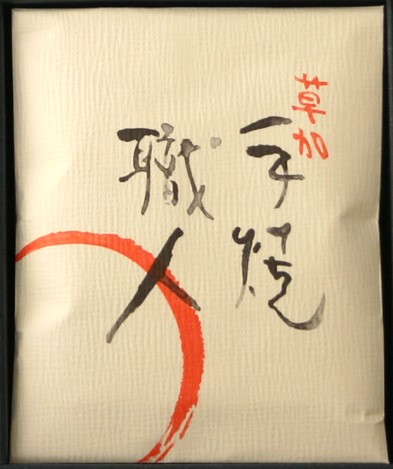 草加
手焼
職人